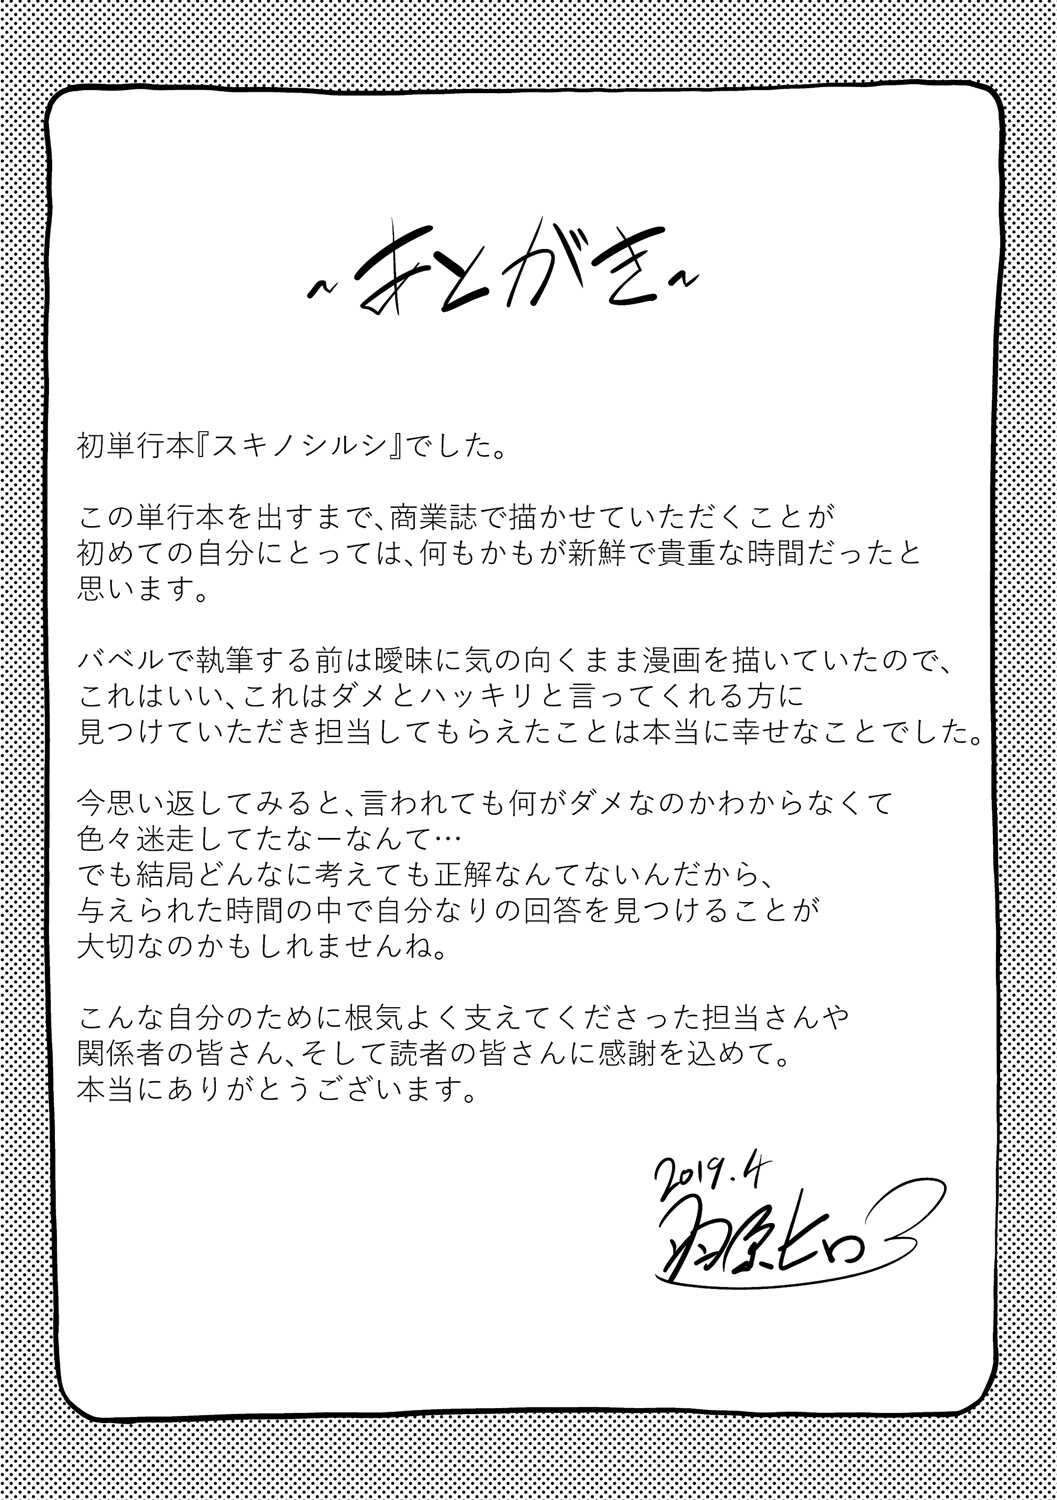 ~あとがき~
初単行本『スキノシルシ』でした。
この単行本を出すまで、商業誌で描かせていただくことが
初めての自分にとっては、何もかもが新鮮で貴重な時間だったと
思います。
バベルで執筆する前は曖昧に気の向くまま漫画を描いていたので、
これはいい、これはダメとハッキリと言ってくれる方に
見つけていただき担当してもらえたことは本当に幸せなことでした。
今思い返してみると、言われても何がダメなのかわからなくて
色々迷走してたなーなんて…
でも結局どんなに考えても正解なんてないんだから、
与えられた時間の中で自分なりの回答を見つけることが
大切なのかもしれませんね。
こんな自分のために根気よく支えてくださった担当さんや
関係者の皆さん、そして読者の皆さんに感謝を込めて。
本当にありがとうございます。
2019.4
羽原ヒロ